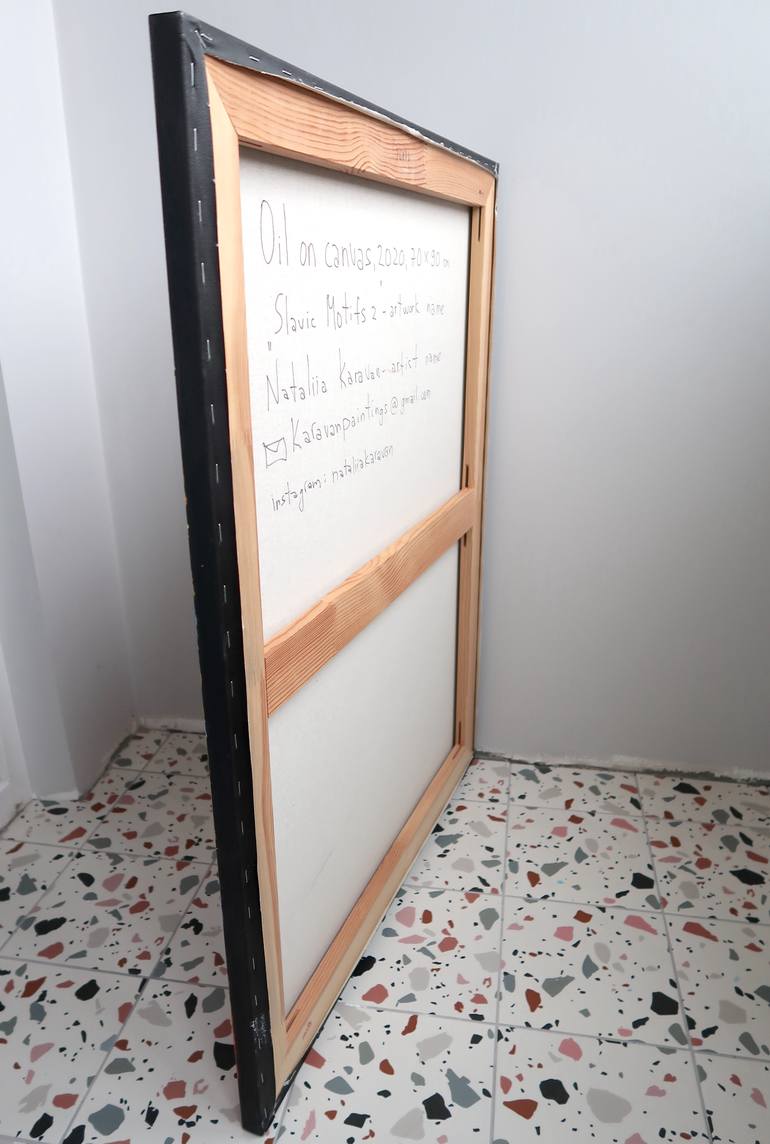 Oil on canvas, 2020, 70 x 90 cm
"Slavic Motifs 2" - artwork name
Nataliia Karavan - artist name
Karavanpaintings@gmail.com
instagram: nataliiakaravan